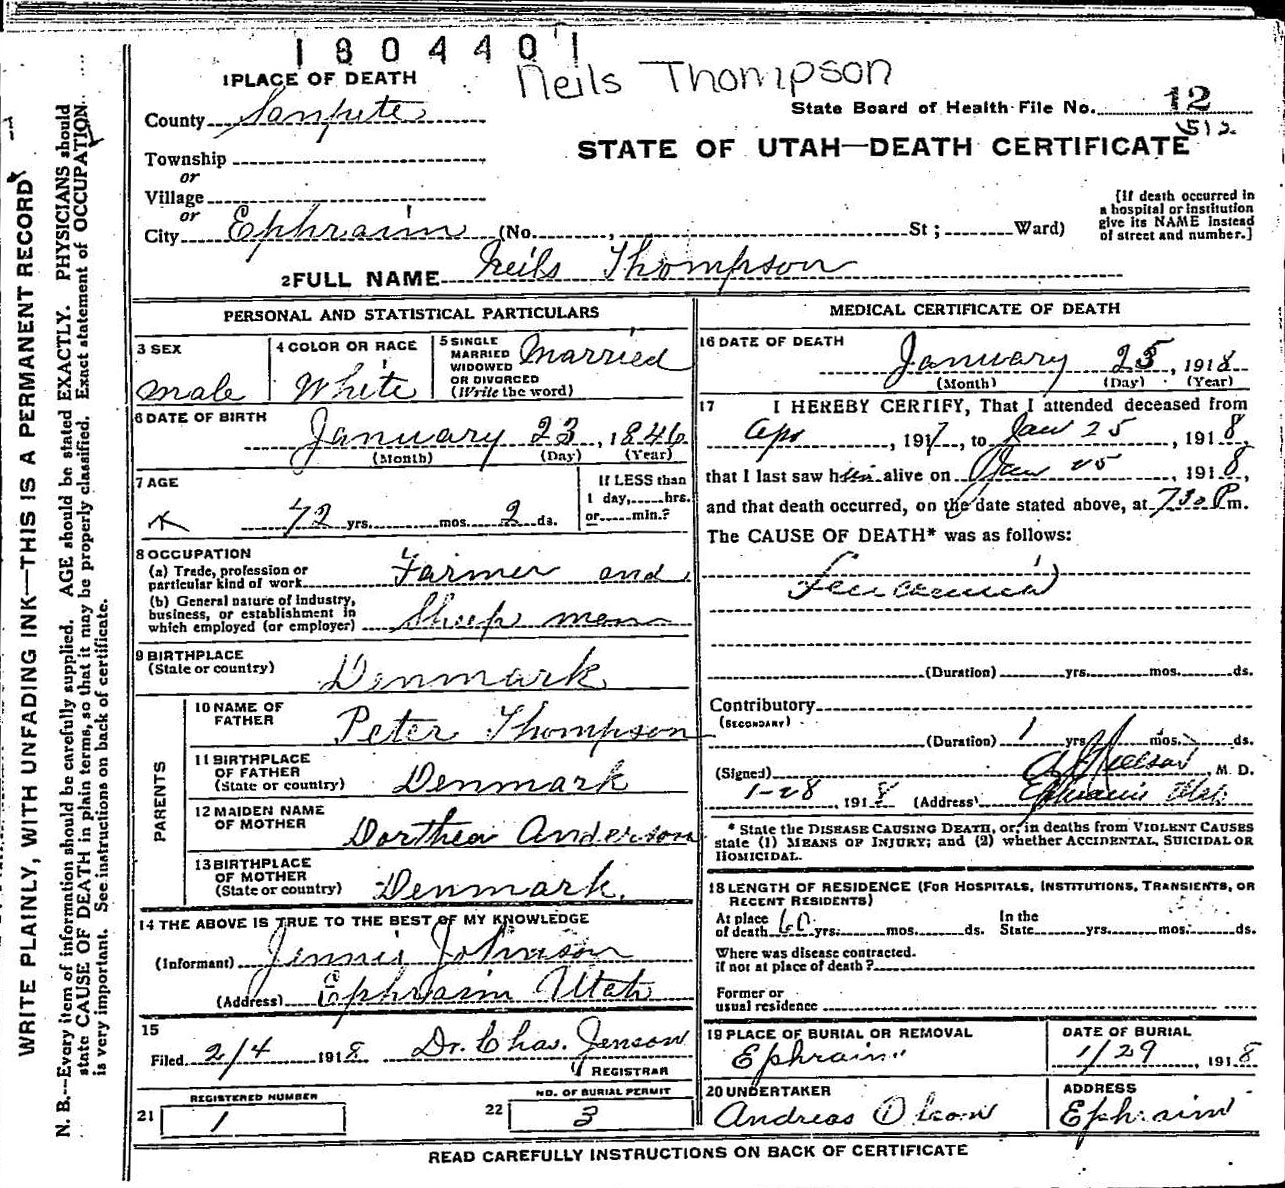 1804401
Neils Thompson
1 PLACE OF DEATH
State Board of Health File No. 12
County Sanpete
STATE OF UTAH—DEATH CERTIFICATE
Township
or
Village
or
City Ephraim (No. , St ; Ward)
[If death occurred in
a hospital or institution
give its NAME instead
of street and number.]
2 FULL NAME Neils Thompson
PERSONAL AND STATISTICAL PARTICULARS
3 SEX
male
4 COLOR OR RACE
White
5 SINGLE
MARRIED
WIDOWED
OR DIVORCED
(Write the word)
Married
6 DATE OF BIRTH
January 23, 1846
(Month) (Day) (Year)
7 AGE
72 yrs. mos. 2 ds.
If LESS than
1 day, hrs.
or min.?
8 OCCUPATION
(a) Trade, profession or
particular kind of work Farmer and
(b) General nature of Industry,
business, or establishment in
which employed (or employer) Sheep man
9 BIRTHPLACE
(State or country) Denmark
PARENTS
10 NAME OF
FATHER Peter Thompson
11 BIRTHPLACE
OF FATHER
(State or country) Denmark
12 MAIDEN NAME
OF MOTHER Dorthea Anderson
13 BIRTHPLACE
OF MOTHER
(State or country) Denmark.
14 THE ABOVE IS TRUE TO THE BEST OF MY KNOWLEDGE
(Informant) Jennie Johnson
(Address) Ephraim Utah
15
Filed 2/4 1918 Dr. Chas. Jenson
REGISTRAR
REGISTERED NUMBER
21 1
NO. OF BURIAL PERMIT
22 3
MEDICAL CERTIFICATE OF DEATH
16 DATE OF DEATH
January 25, 1918
(Month) (Day) (Year)
17 I HEREBY CERTIFY, That I attended deceased from
Apr , 1917, to Jan 25 , 1918,
that I last saw him alive on Jan 25 , 1918,
and that death occurred, on the date stated above, at 730 P m.
The CAUSE OF DEATH* was as follows:
(Duration) yrs. mos. ds.
Contributory
(SECONDARY)
(Duration) 1 yrs. mos. ds.
(Signed) M. D.
1-28 , 1918 (Address) Ephraim Utah
* State the DISEASE CAUSING DEATH, or, in deaths from VIOLENT CAUSES
state (1) MEANS OF INJURY; and (2) whether ACCIDENTAL, SUICIDAL OR
HOMICIDAL.
18 LENGTH OF RESIDENCE (FOR HOSPITALS, INSTITUTIONS, TRANSIENTS, OR
RECENT RESIDENTS)
At place
of death 60 yrs. mos. ds.
In the
State yrs. mos. ds.
Where was disease contracted.
if not at place of death?
Former or
usual residence
19 PLACE OF BURIAL OR REMOVAL
Ephraim
DATE OF BURIAL
1/29 , 1918
20 UNDERTAKER
Andreas Olson
ADDRESS
Ephraim
READ CAREFULLY INSTRUCTIONS ON BACK OF CERTIFICATE
WRITE PLAINLY, WITH UNFADING INK—THIS IS A PERMANENT RECORD
N. B.—Every item of information should be carefully supplied. AGE should be stated EXACTLY. PHYSICIANS should
state CAUSE OF DEATH in plain terms, so that it may be properly classified. Exact statement of OCCUPATION
is very important. See instructions on back of certificate.